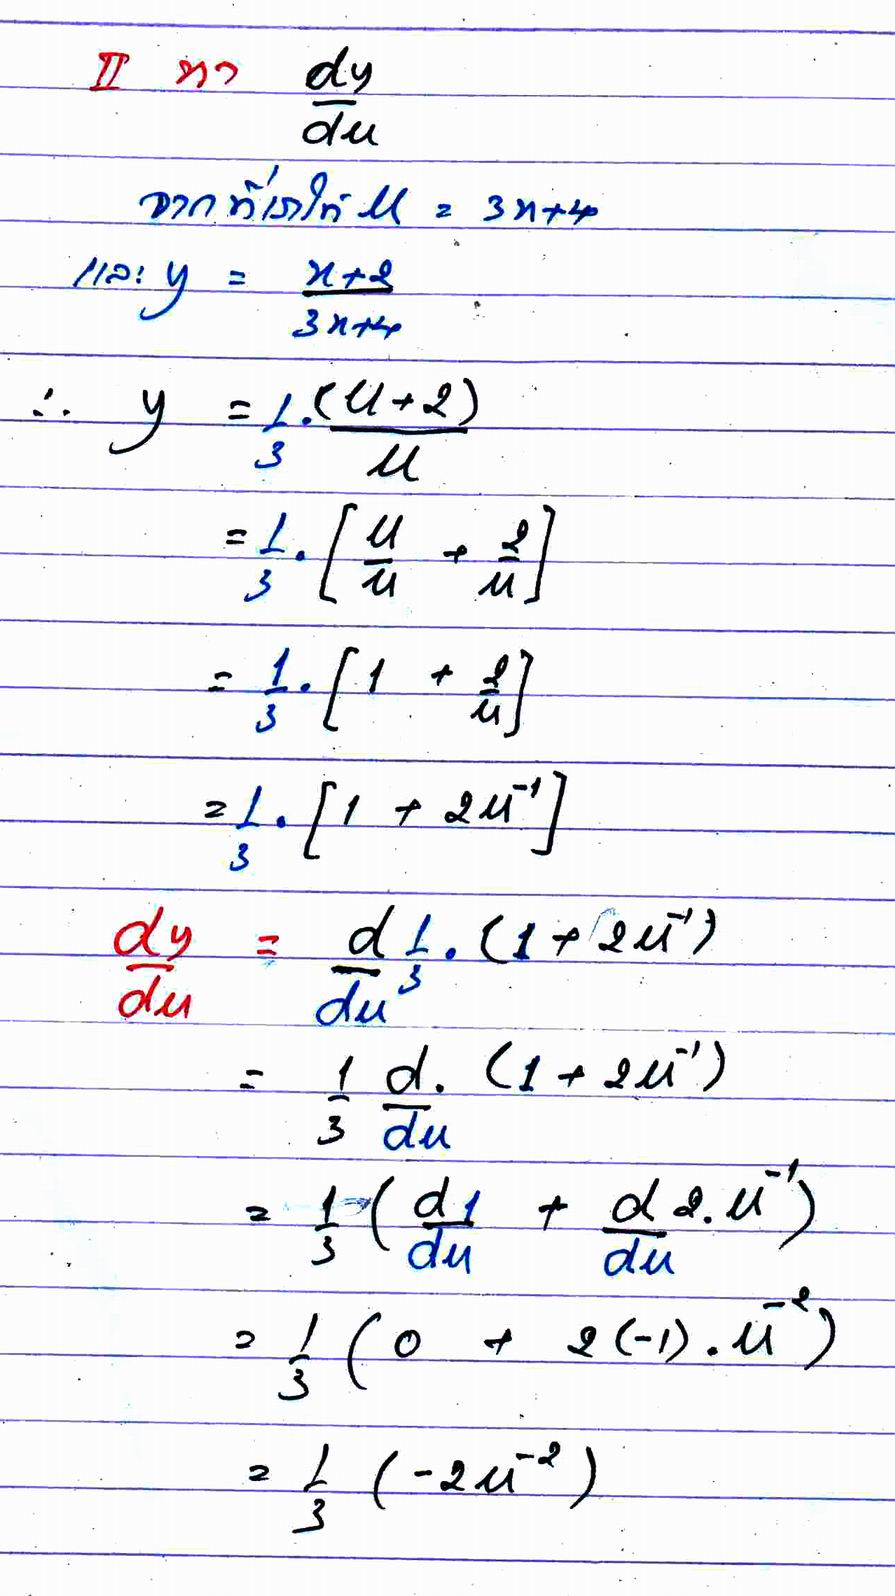 II หา dy/du
จากที่เราให้ u = 3x+4
และ y = (x+2)/(3x+4)
∴ y = 1/3 · (u+2)/u
= 1/3 · [u/u + 2/u]
= 1/3 · [1 + 2/u]
= 1/3 · [1 + 2u⁻¹]
dy/du = d/du 1/3 · (1 + 2u⁻¹)
= 1/3 d/du · (1 + 2u⁻¹)
= 1/3 (d1/du + d/du 2.u⁻¹)
= 1/3 (0 + 2(-1).u⁻²)
= 1/3 (-2u⁻²)